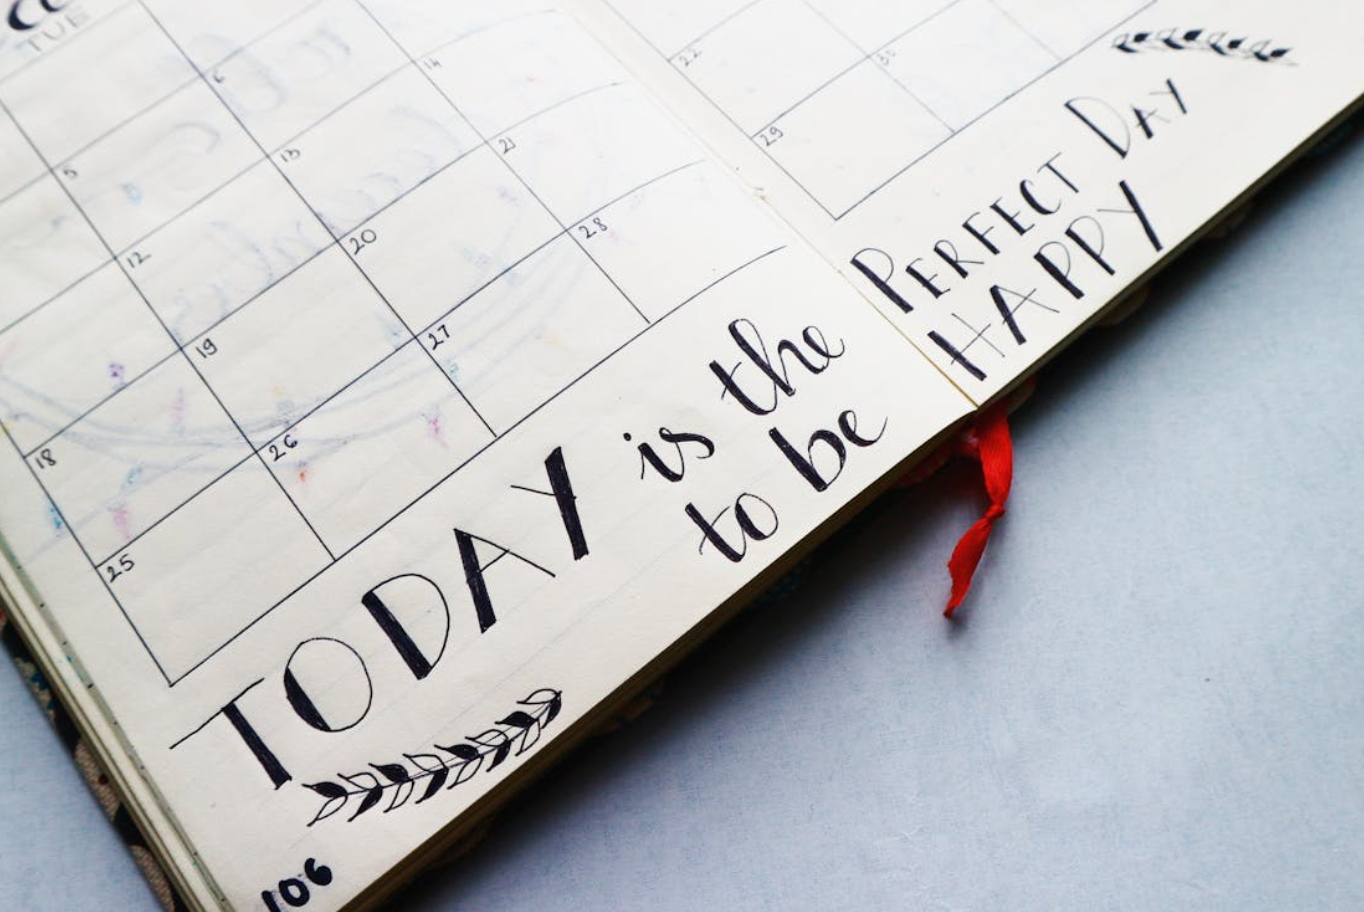 TUE
6
14
22
30
5
13
21
29
12
20
28
19
27
18
26
25
TODAY is the PERFECT DAY
to be HAPPY
106